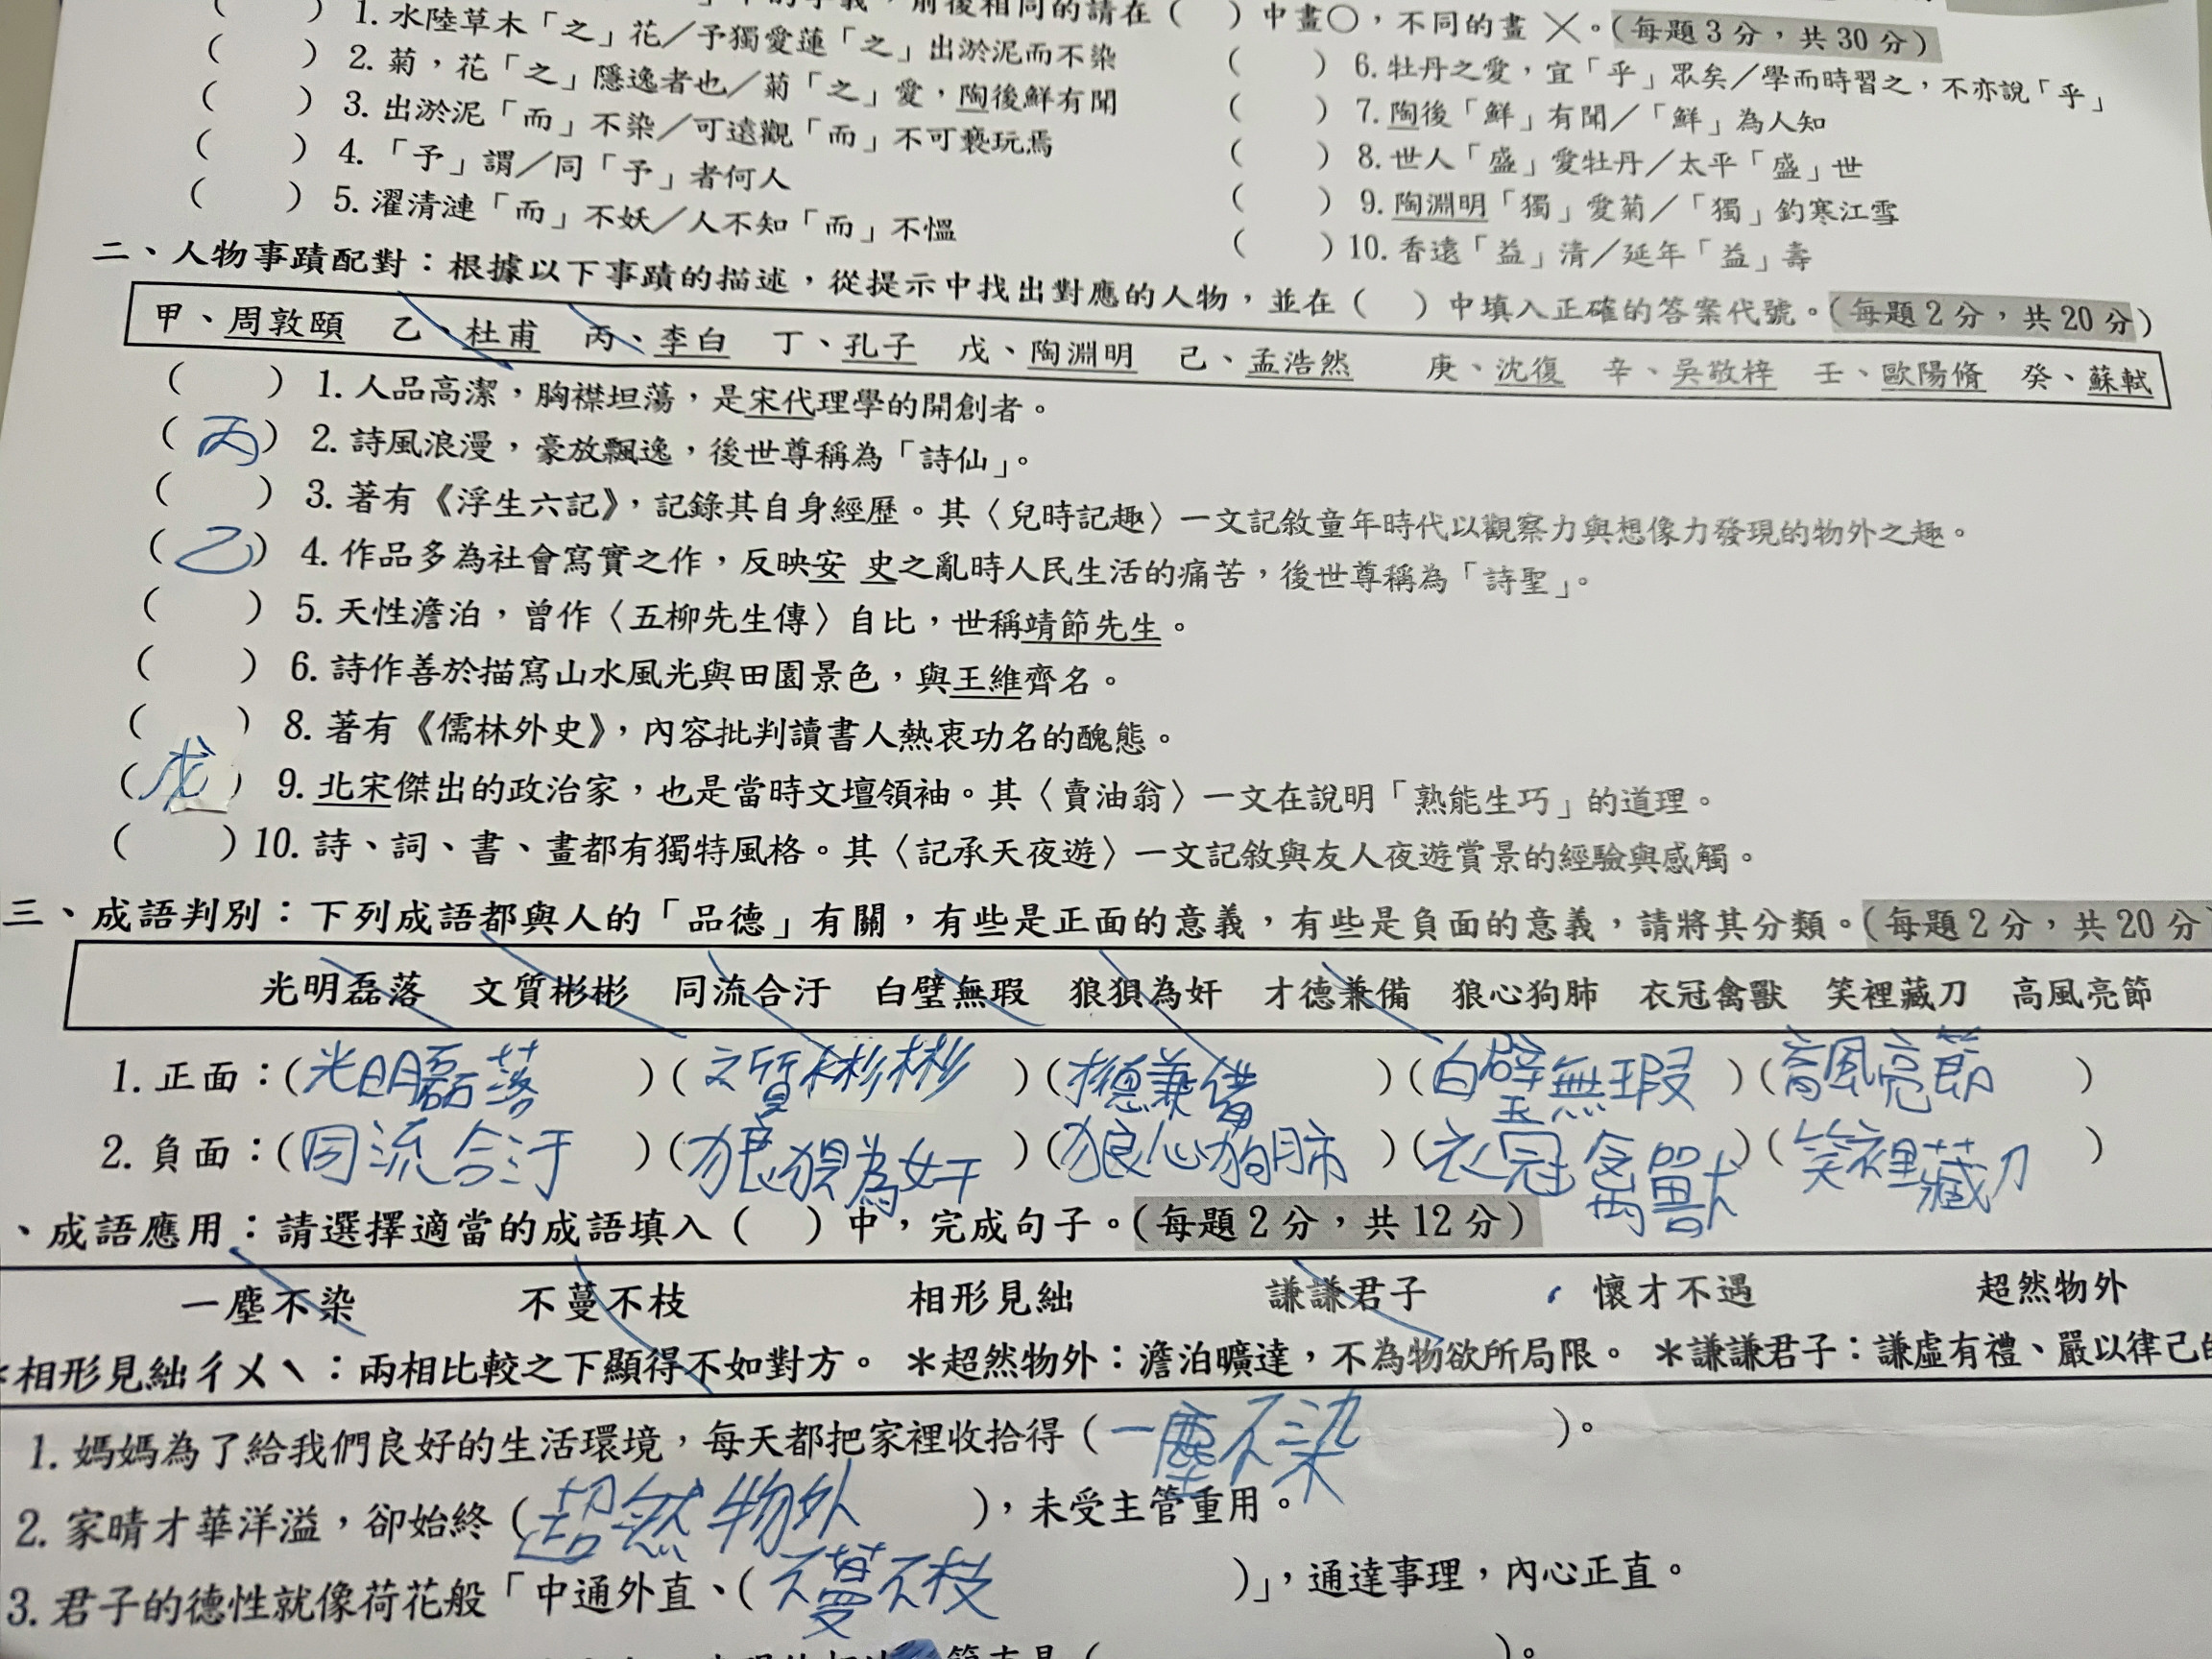 中的字義，前後相同的請在（　）中畫○，不同的畫╳。（每題3分，共30分）
（　）1. 水陸草木「之」花／予獨愛蓮「之」出淤泥而不染
（　）2. 菊，花「之」隱逸者也／菊「之」愛，陶後鮮有聞
（　）3. 出淤泥「而」不染／可遠觀「而」不可褻玩焉
（　）4. 「予」謂／同「予」者何人
（　）5. 濯清漣「而」不妖／人不知「而」不慍
（　）6. 牡丹之愛，宜「乎」眾矣／學而時習之，不亦說「乎」
（　）7. 陶後「鮮」有聞／「鮮」為人知
（　）8. 世人「盛」愛牡丹／太平「盛」世
（　）9. 陶淵明「獨」愛菊／「獨」釣寒江雪
（　）10. 香遠「益」清／延年「益」壽
二、人物事蹟配對：根據以下事蹟的描述，從提示中找出對應的人物，並在（　）中填入正確的答案代號。（每題2分，共20分）
甲、周敦頤　乙、杜甫　丙、李白　丁、孔子　戊、陶淵明　己、孟浩然　庚、沈復　辛、吳敬梓　壬、歐陽脩　癸、蘇軾
（　）1. 人品高潔，胸襟坦蕩，是宋代理學的開創者。
（丙）2. 詩風浪漫，豪放飄逸，後世尊稱為「詩仙」。
（　）3. 著有《浮生六記》，記錄其自身經歷。其〈兒時記趣〉一文記敘童年時代以觀察力與想像力發現的物外之趣。
（乙）4. 作品多為社會寫實之作，反映安 史之亂時人民生活的痛苦，後世尊稱為「詩聖」。
（　）5. 天性澹泊，曾作〈五柳先生傳〉自比，世稱靖節先生。
（　）6. 詩作善於描寫山水風光與田園景色，與王維齊名。
（　）8. 著有《儒林外史》，內容批判讀書人熱衷功名的醜態。
（戊）9. 北宋傑出的政治家，也是當時文壇領袖。其〈賣油翁〉一文在說明「熟能生巧」的道理。
（　）10. 詩、詞、書、畫都有獨特風格。其〈記承天夜遊〉一文記敘與友人夜遊賞景的經驗與感觸。
三、成語判別：下列成語都與人的「品德」有關，有些是正面的意義，有些是負面的意義，請將其分類。（每題2分，共20分
光明磊落　文質彬彬　同流合汙　白璧無瑕　狼狽為奸　才德兼備　狼心狗肺　衣冠禽獸　笑裡藏刀　高風亮節
1. 正面：（光明磊落）（文質彬彬）（才德兼備）（白璧無瑕）（高風亮節）
2. 負面：（同流合汙）（狼狽為奸）（狼心狗肺）（衣冠禽獸）（笑裡藏刀）
、成語應用：請選擇適當的成語填入（　）中，完成句子。（每題2分，共12分）
一塵不染　不蔓不枝　相形見絀　謙謙君子　懷才不遇　超然物外
＊相形見絀ㄔㄨˋ：兩相比較之下顯得不如對方。＊超然物外：澹泊曠達，不為物欲所局限。＊謙謙君子：謙虛有禮、嚴以律己的
1. 媽媽為了給我們良好的生活環境，每天都把家裡收拾得（一塵不染）。
2. 家晴才華洋溢，卻始終（超然物外），未受主管重用。
3. 君子的德性就像荷花般「中通外直、（不蔓不枝）」，通達事理，內心正直。